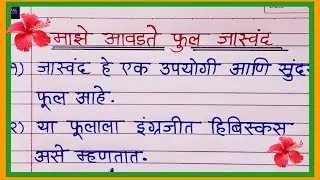 माझे आवडते फुल जास्वंद
१) जास्वंद हे एक उपयोगी आणि
फूल आहे.
२) या फूलाला इंग्रजीत हिबिस्कस
असे म्हणतात.